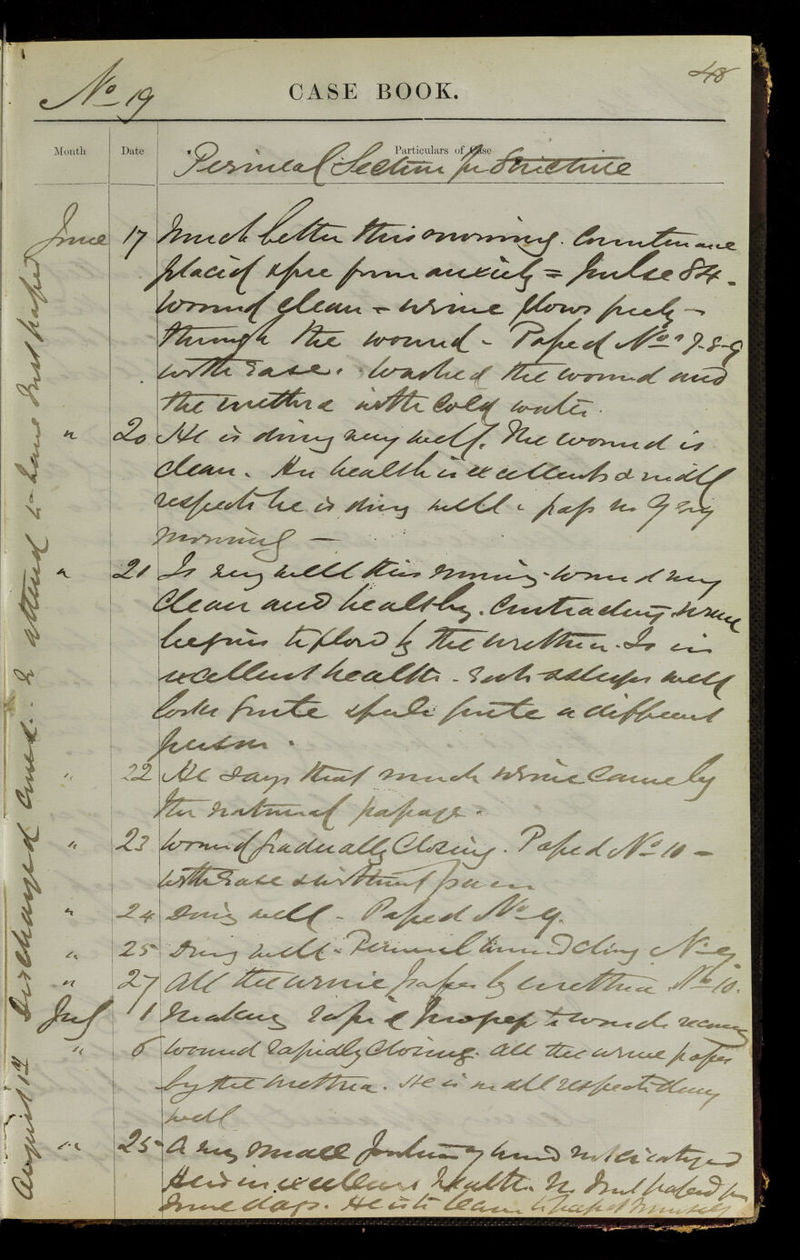 No 19
48
CASE BOOK.
Month Date Particulars of Case
Perineal Section for Stricture
June 17 Much better this morning. Countenance
placid & free from anxiety = Pulse 84 -
Wound clean - urine flows freely -
through the wound - Passed Nos 7-8-9
with ease. Washed the wound and
the urethra with Cold water.
" 20 He is doing very well. The wound is
clean. His health is excellent & in all
respects he is doing well. pass no 9 every
morning -
" 21 Is very well this morning. wound very
clean and healthy. Contracting. Urine
begins to flow by the urethra. Is in
excellent health. Eats & sleeps well
looks quite & feels quite a different
person.
" 22 He says that much urine came by
the natural passage.
" 23 Wound gradually Closing. Passed No 10 -
with ease & without pain
" 24 Doing well - Passed No 9.
" 25 Doing well. Perineal wound closing No 9.
" 27 All the urine passes by urethra No 10.
July 1 Making rapid progress towards recovery
" 6 Wound rapidly closing. All the urine passes
by the urethra. He is in all respects doing
well
" 25 A very small portion of wound not cicatrized
He is in excellent health. No Inst passed for
some days. He is to learn to pass it himself
August 1st Discharged Cured. To attend to have Inst passed